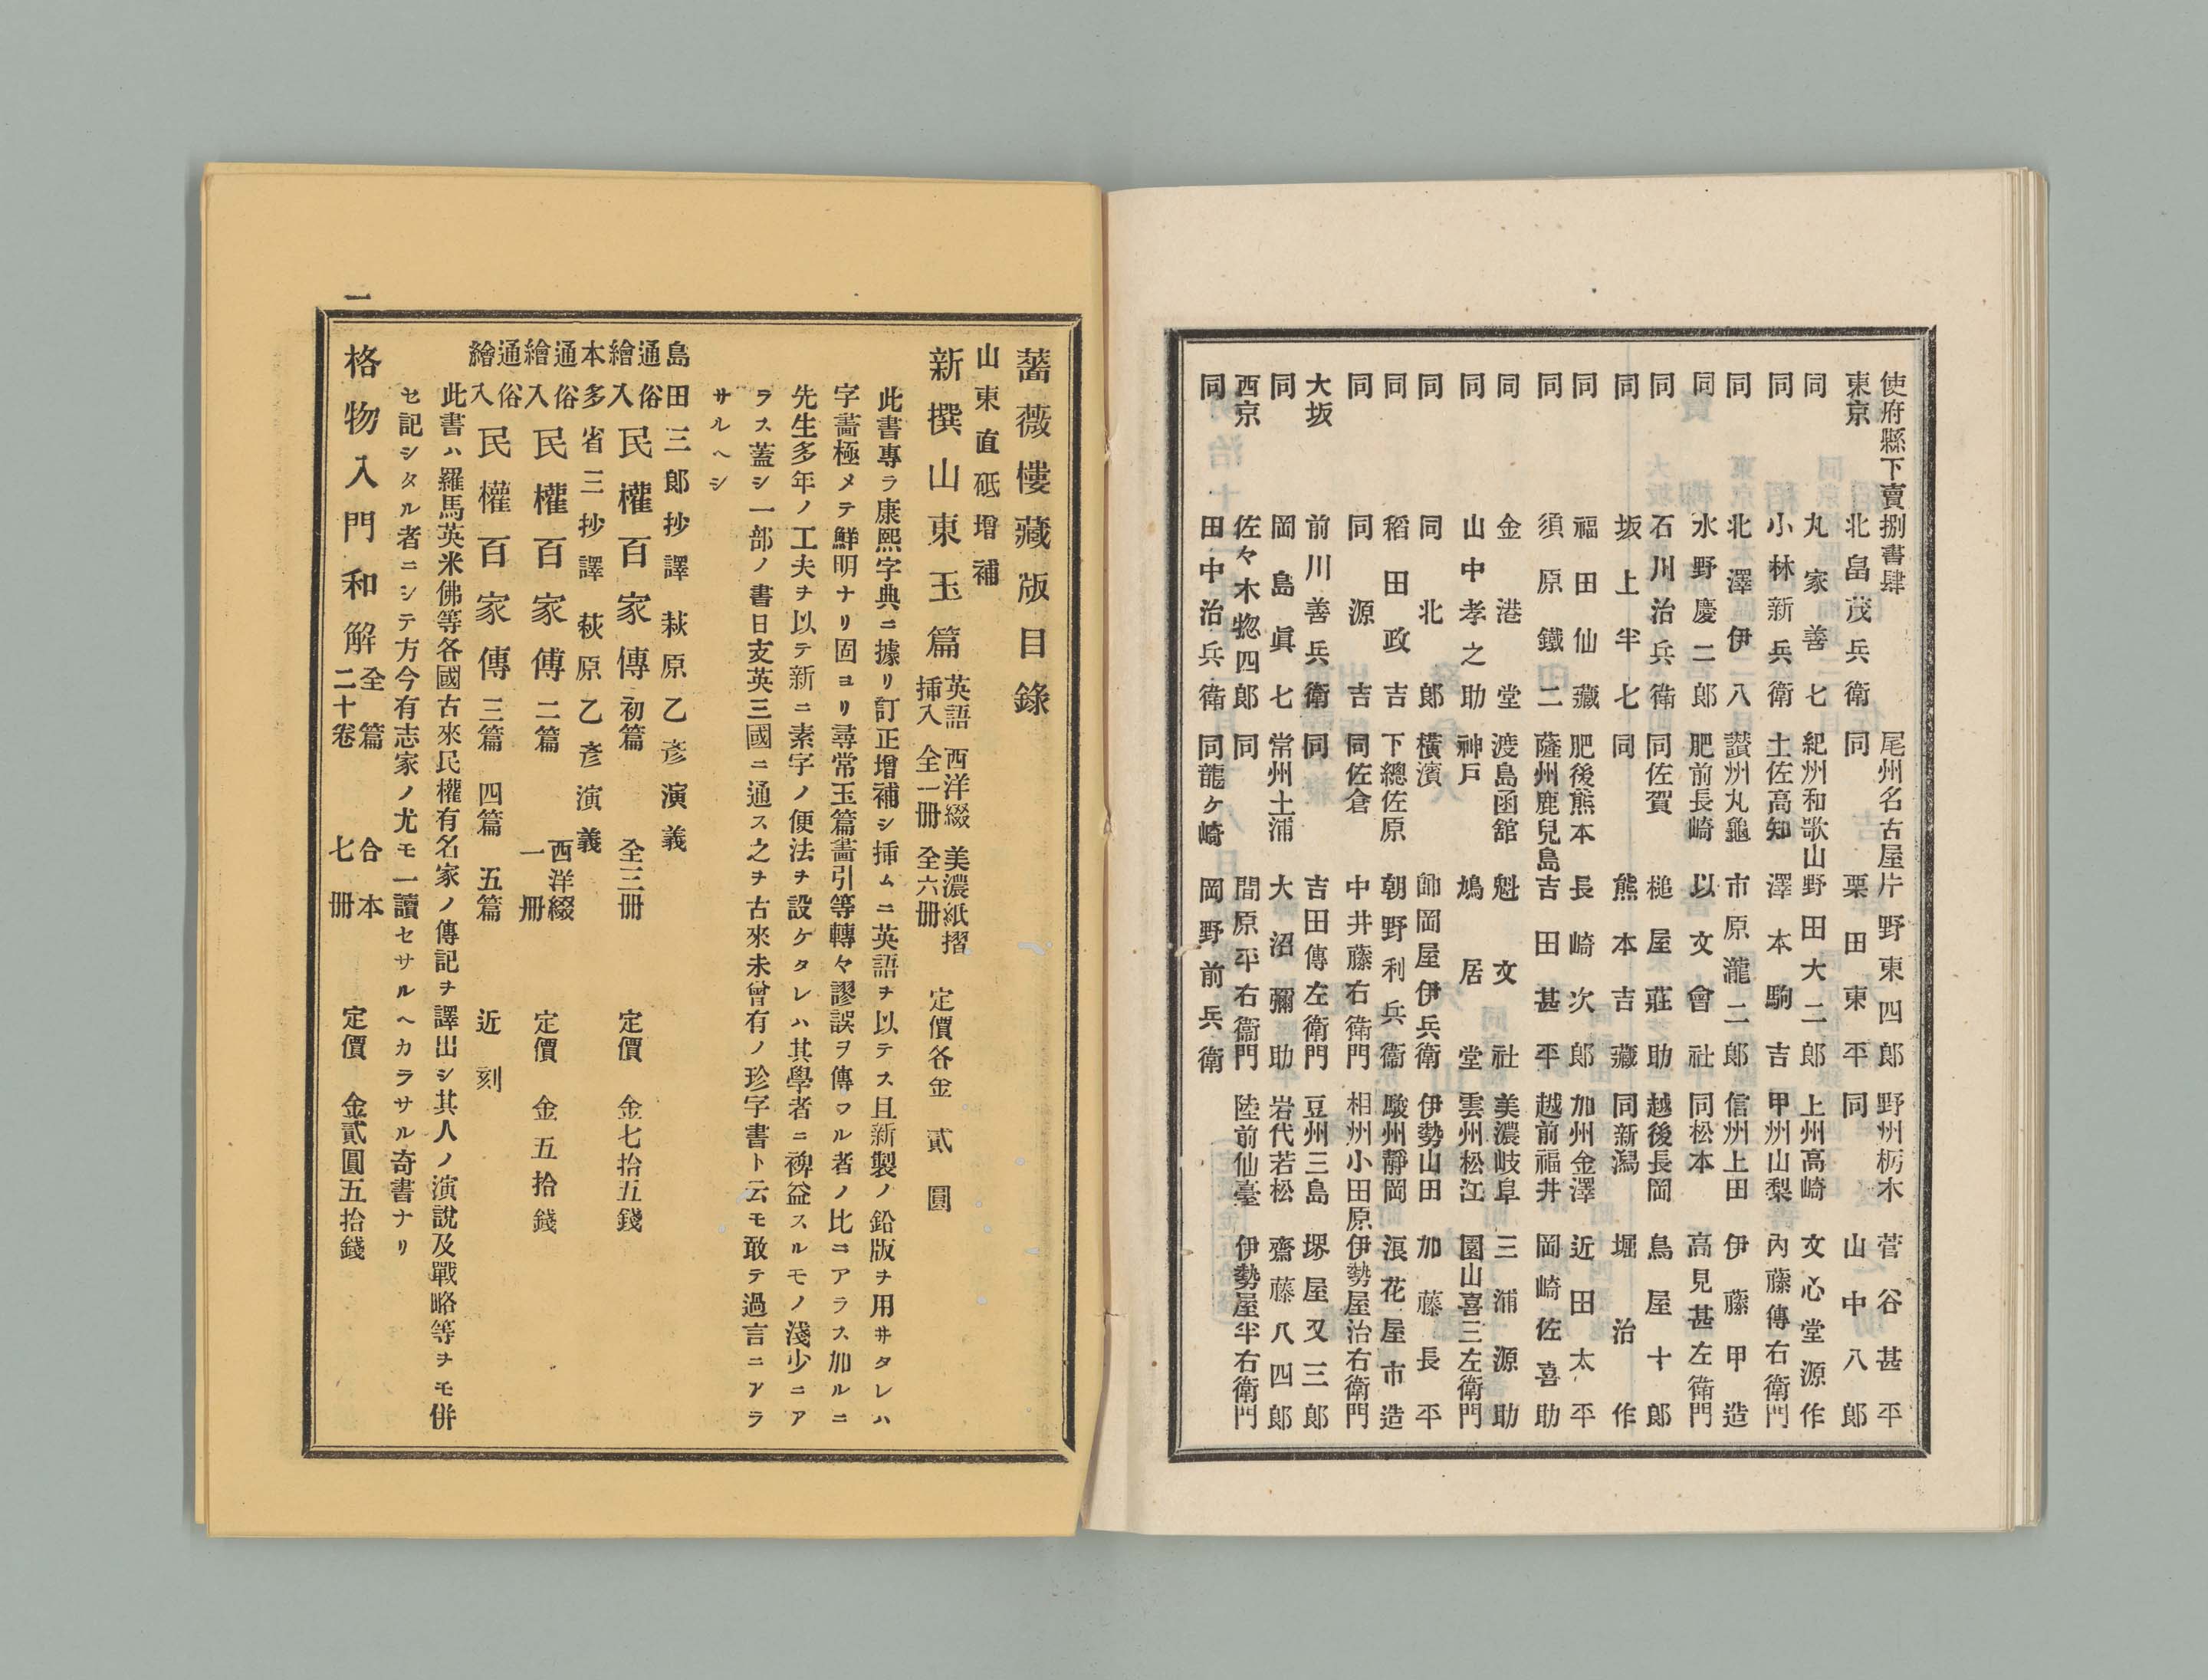 使府縣下賣捌書肆
東京 北畠茂兵衛
同 丸家善七
同 小林新兵衛
同 北澤伊八
同 水野慶二郎
同 石川治兵衛
同 坂上半七
同 福田仙藏
同 須原鐵二
同 金港堂
同 山中孝之助
同 同北郎
同 稻田政吉
同 同源吉
大坂 前川善兵衛
同 岡島眞七
西京 佐々木惣四郎
同 田中治兵衛
尾州名古屋 片野東四郎
同 栗田東平
紀州和歌山 野田大二郎
土佐高知 澤本駒吉
讃州丸龜 市原瀧二郎
肥前長崎 以文會社
同佐賀 槌屋莊助
同 熊本吉藏
肥後熊本 長崎次郎
薩州鹿兒島 吉田甚平
渡島函館 魁文社
神戸 鳩居堂
橫濱 師岡屋伊兵衛
下總佐原 朝野利兵衞
同佐倉 中井藤右衛門
同 吉田傳左衛門
常州土浦 大沼彌助
同 間原平右衞門
同龍ヶ崎 岡野前兵衛
野州栃木 菅谷甚平
同 山中八郎
上州高崎 文心堂源作
甲州山梨 內藤傳右衛門
信州上田 伊藤甲造
同松本 高見甚左衛門
越後長岡 鳥屋十郎
同新潟 堀治作
加州金澤 近田太平
越前福井 岡崎佐喜助
美濃岐阜 三浦源助
雲州松江 園山喜三左衛門
伊勢山田 加藤長平
駿州靜岡 浪花屋市造
相州小田原 伊勢屋治右衛門
豆州三島 堺屋又三郎
岩代若松 齋藤八四郎
陸前仙臺 伊勢屋半右衛門
薔薇樓藏版目錄
山東直砥增補
新撰山東玉篇 英語挿入 西洋綴全一册 美濃紙摺全六册 定價各金貳圓
此書專ラ康熙字典ニ據リ訂正增補シ挿ムニ英語ヲ以テス且新製ノ鉛版ヲ用サタレハ
字畵極メテ鮮明ナリ固ヨリ尋常玉篇畵引等轉々謬誤ヲ傳フル者ノ比ニアラス加ルニ
先生多年ノ工夫ヲ以テ新ニ素字ノ便法ヲ設ケタレハ其學者ニ裨益スルモノ淺少ニア
ラス蓋シ一部ノ書日支英三國ニ通ス之ヲ古來未曾有ノ珍字書ト云モ敢テ過言ニアラ
サルヘシ
島田三郎抄譯 萩原乙彥演義
通俗繪入 民權百家傳 初篇 全三册 定價 金七拾五錢
本多省三抄譯 萩原乙彥演義
通俗繪入 民權百家傳 二篇 西洋綴一册 定價 金五拾錢
通俗繪入 民權百家傳 三篇 四篇 五篇 近刻
此書ハ羅馬英米佛等各國古來民權有名家ノ傳記ヲ譯出シ其人ノ演說及戰略等ヲモ併
セ記シタル者ニシテ方今有志家ノ尤モ一讀セサルヘカラサル奇書ナリ
格物入門和解 全篇二十卷 合本七册 定價 金貳圓五拾錢
一